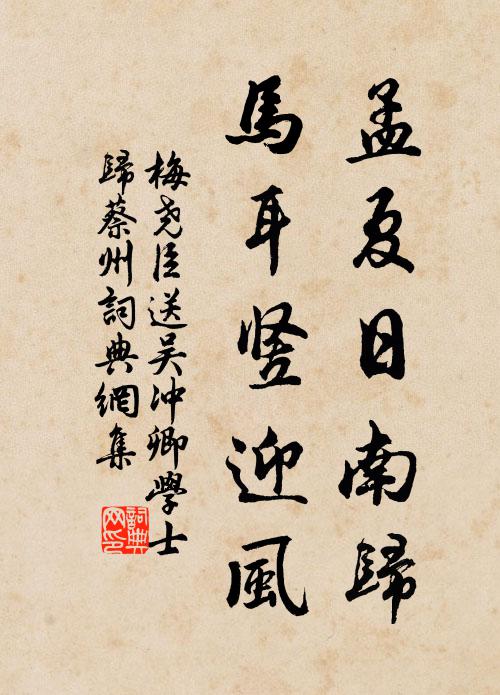 孟夏日南歸
馬耳竖迎風
梅尧臣送吴冲卿學士
歸蔡州詞典網集
詞典
网印